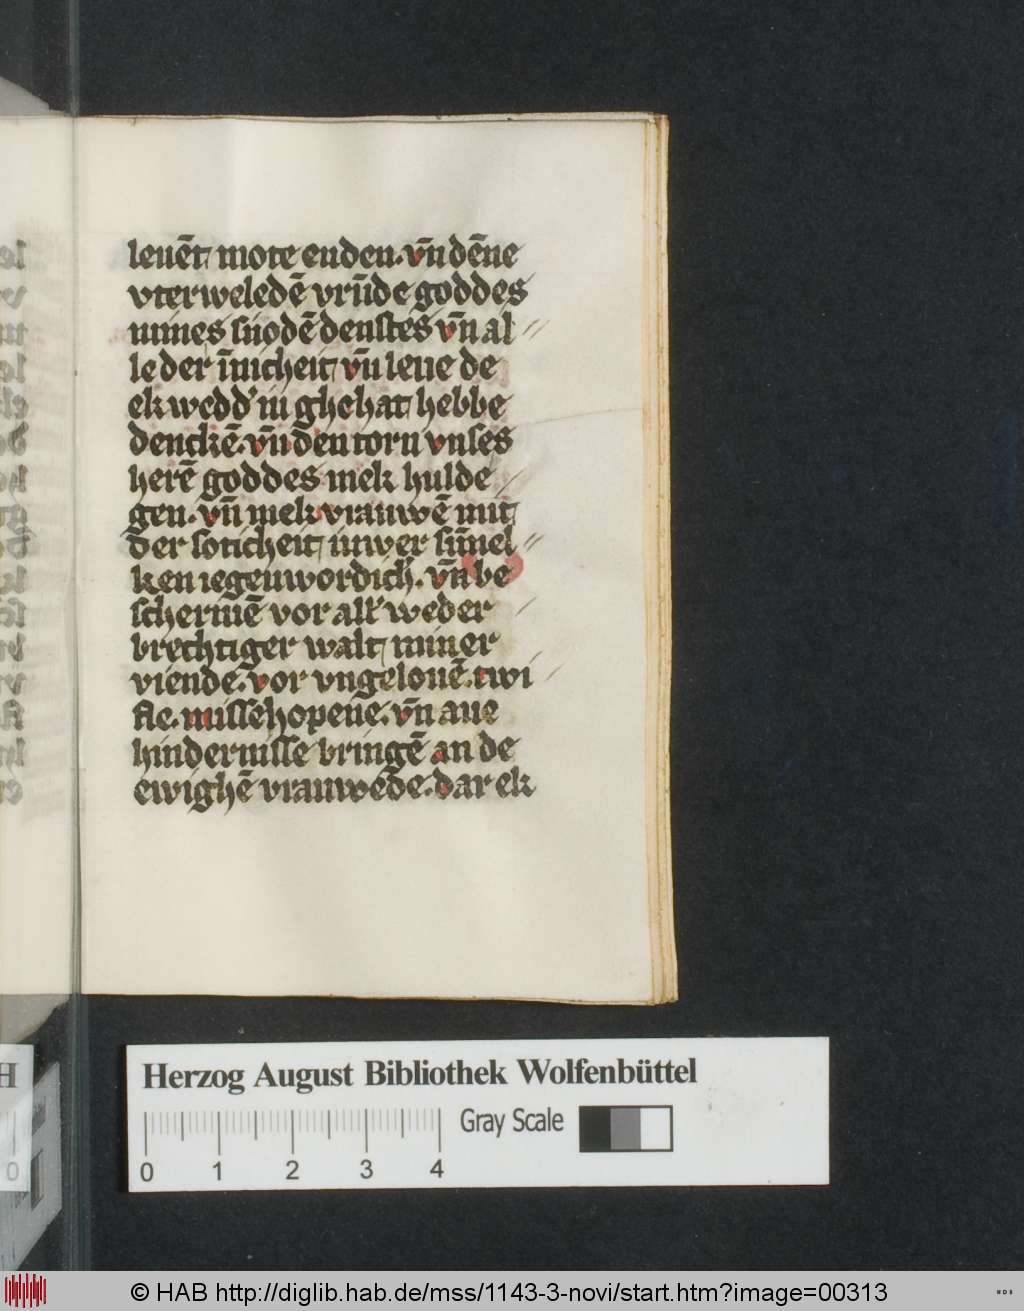 leuēt mote enden. vn̄ dēne
vterweledē vrūde goddes
mines snodē denstes vn̄ al〃
le der īnicheit vn̄ leue de
ek wedd' iu ghehat hebbe
denckē. vn̄ den torn vnses
herē goddes mek hulde〃
gen. vn̄ mek vrauwē mit
der soticheit iuwer sūnel〃
ken iegenwordich'. vn̄ be
schermē vor all' weder/
brechtiger walt miner
viende. vor vngelouē. twi〃
fle. missehopene. vn̄ ane
hindernisse bringē an de
ewighē vrauwede. dar ek
Herzog August Bibliothek Wolfenbüttel
Gray Scale
0 1 2 3 4
© HAB http://diglib.hab.de/mss/1143-3-novi/start.htm?image=00313